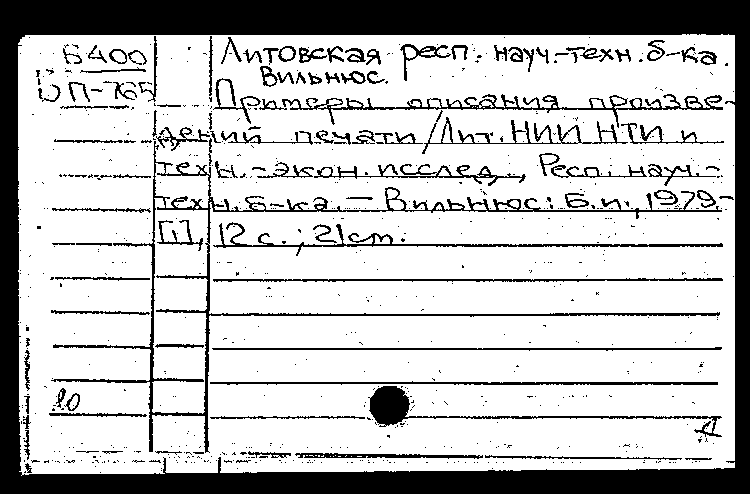 Б400 Литовская респ. науч.-техн. б-ка.
Вильнюс.
П-765 Примеры описания произве-
дений печати/Лит. НИИ НТИ и
техн.-экон. исслед., Респ. науч.-
техн. б-ка. — Вильнюс: Б.и., 1979.-
[1], 12 с.; 21 см.